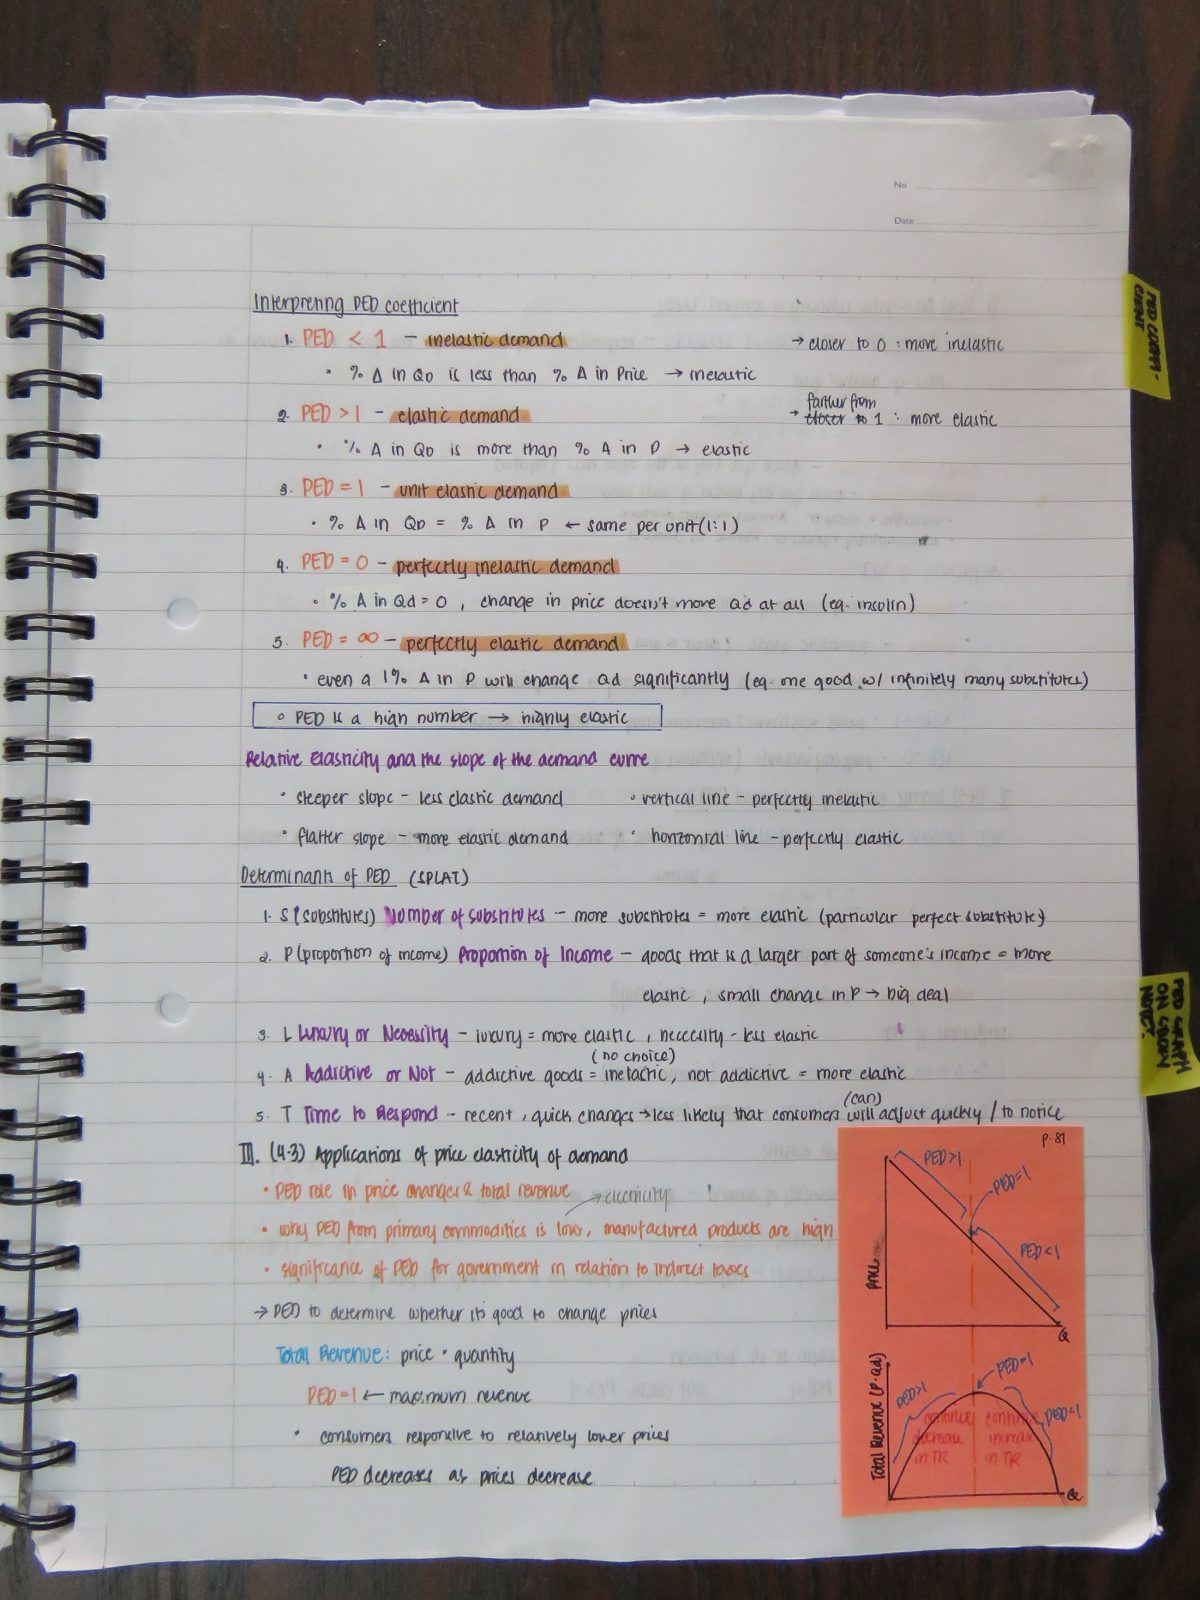 No
Date
Interpreting PED coefficient
1. PED < 1 – inelastic demand → closer to 0 : more inelastic
• % Δ in QD is less than % Δ in Price → inelastic
2. PED > 1 – elastic demand → farther from closer to 1 : more elastic
• % Δ in QD is more than % Δ in P → elastic
3. PED = 1 – unit elastic demand
• % Δ in QD = % Δ in P ← same per unit (1:1)
4. PED = 0 – perfectly inelastic demand
• % Δ in Qd = 0 , change in price doesn't move Qd at all (eg. insulin)
5. PED = ∞ – perfectly elastic demand
• even a 1% Δ in P will change Qd significantly (eg. one good w/ infinitely many substitutes)
○ PED is a high number → highly elastic
Relative Elasticity and the slope of the demand curve
• steeper slope – less elastic demand • vertical line – perfectly inelastic
• flatter slope – more elastic demand • horizontal line – perfectly elastic
Determinants of PED (SPLAT)
1. S (substitutes) Number of substitutes – more substitutes = more elastic (particular perfect substitute)
2. P (proportion of income) Proportion of Income – goods that is a larger part of someone's income = more
elastic , small change in P → big deal
3. L Luxury or Necessity – luxury = more elastic , necessity – less elastic
(no choice)
4. A Addictive or Not – addictive goods = inelastic, not addictive = more elastic
(can)
5. T Time to Respond – recent , quick changes → less likely that consumers will adjust quickly / to notice
III. (4.3) Applications of price elasticity of demand
• PED role in price changes & total revenue → electricity
• why PED from primary commodities is low, manufactured products are high
• significance of PED for government in relation to indirect taxes
→ PED to determine whether it's good to change prices
Total Revenue: price • quantity
PED=1 ← maximum revenue
• consumers responsive to relatively lower prices
PED decreases as prices decrease
P. 81
PED>1
PED=1
PED<1
Price
Q
PED=1
PED>1
PED<1
Total Revenue (P·Qd)
continue decrease in TR
continue increase in TR
Q
PED COEFFI-
CIENT
PED GRAPH
ON
NOTE: